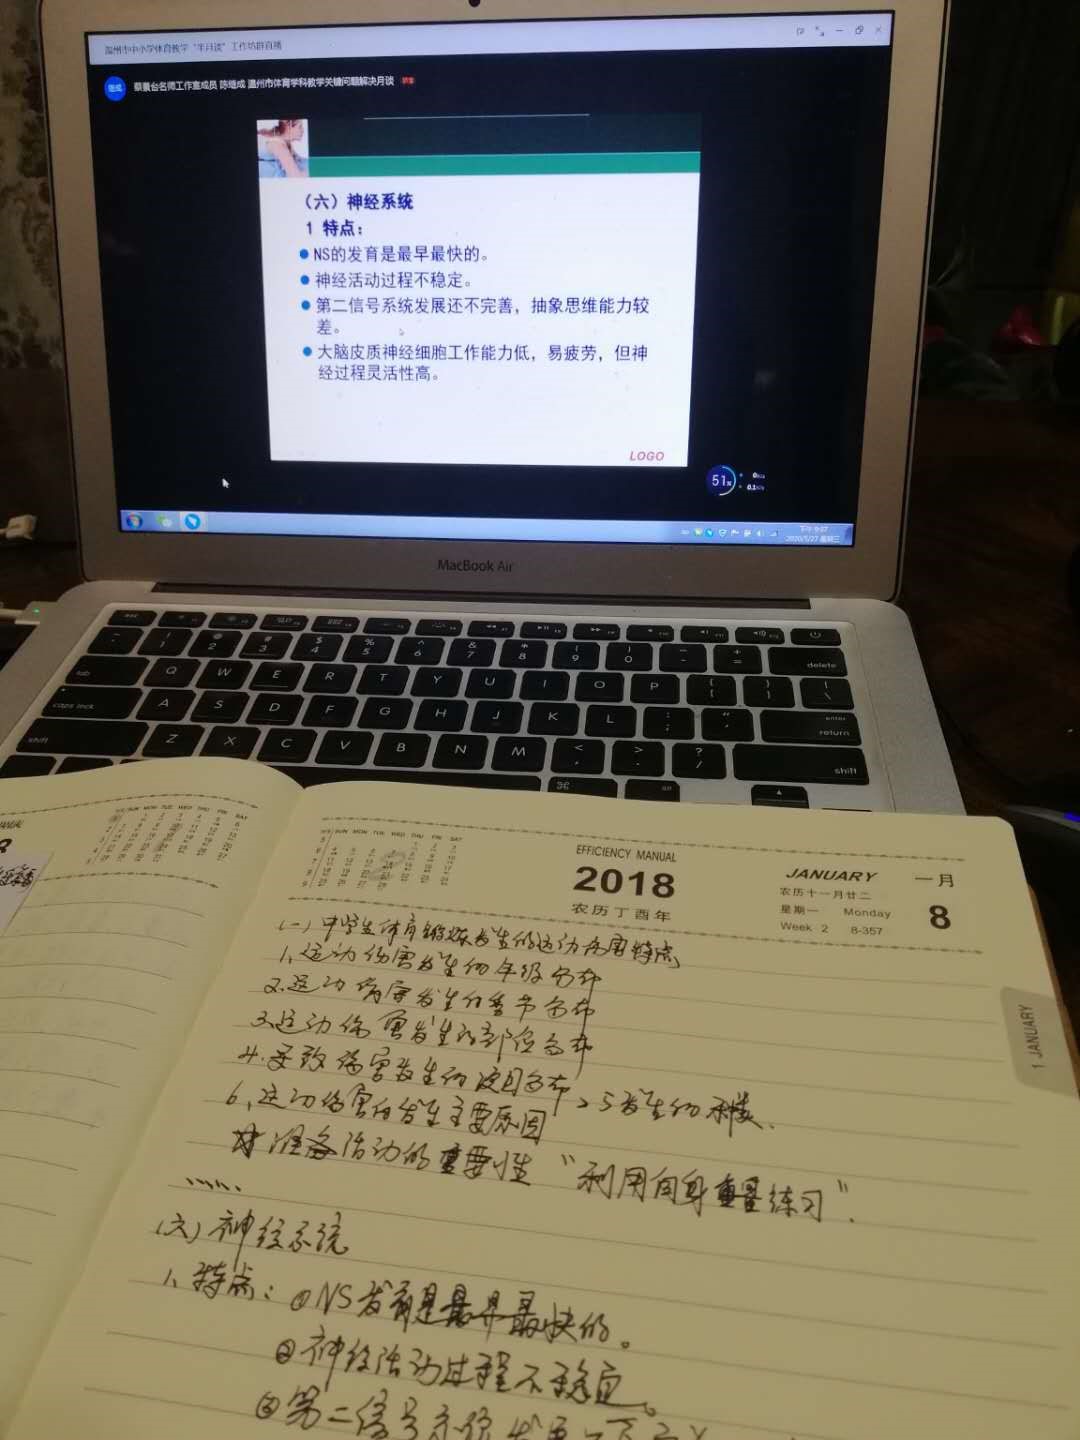 温州市中小学体育教学“半月谈”工作坊群直播
蔡景台名师工作室成员 陈继成 温州市体育学科教学关键问题解决月谈
（六）神经系统
1 特点：
NS的发育是最早最快的。
神经活动过程不稳定。
第二信号系统发展还不完善，抽象思维能力较
差。
大脑皮质神经细胞工作能力低，易疲劳，但神
经过程灵活性高。
LOGO
51%
下午 9:27
2020/5/27 星期三
MacBook Air
! 1 @ 2 # 3 $ 4 % 5 ^ 6 & 7 * 8 ( 9 ) 0 - + = delete
tab Q W E R T Y U I O P { [ } ] | \
caps lock A S D F G H J K L : ; " ' enter return
shift Z X C V B N M < , > . ? / shift
⌘ alt
SUN MON TUE WED THU FRI SAT
EFFICIENCY MANUAL
2018
农历丁酉年
JANUARY 一月
农历十一月廿二
星期一 Monday
Week 2 8-357
8
1 JANUARY
(一)中学生体育锻炼发生的运动伤害特点
1、运动伤害发生的年级分布
2、运动伤害发生的季节分布
3、运动伤害发生的部位分布
4、导致伤害发生的项目分布，5发生的
6、运动伤害的发生主要原因
准备活动的重要性“利用自身重量练习”.
......
(六)神经系统
1、特点：①NS发育是最早最快的。
②神经活动过程不稳定。
③第二信号系统发展